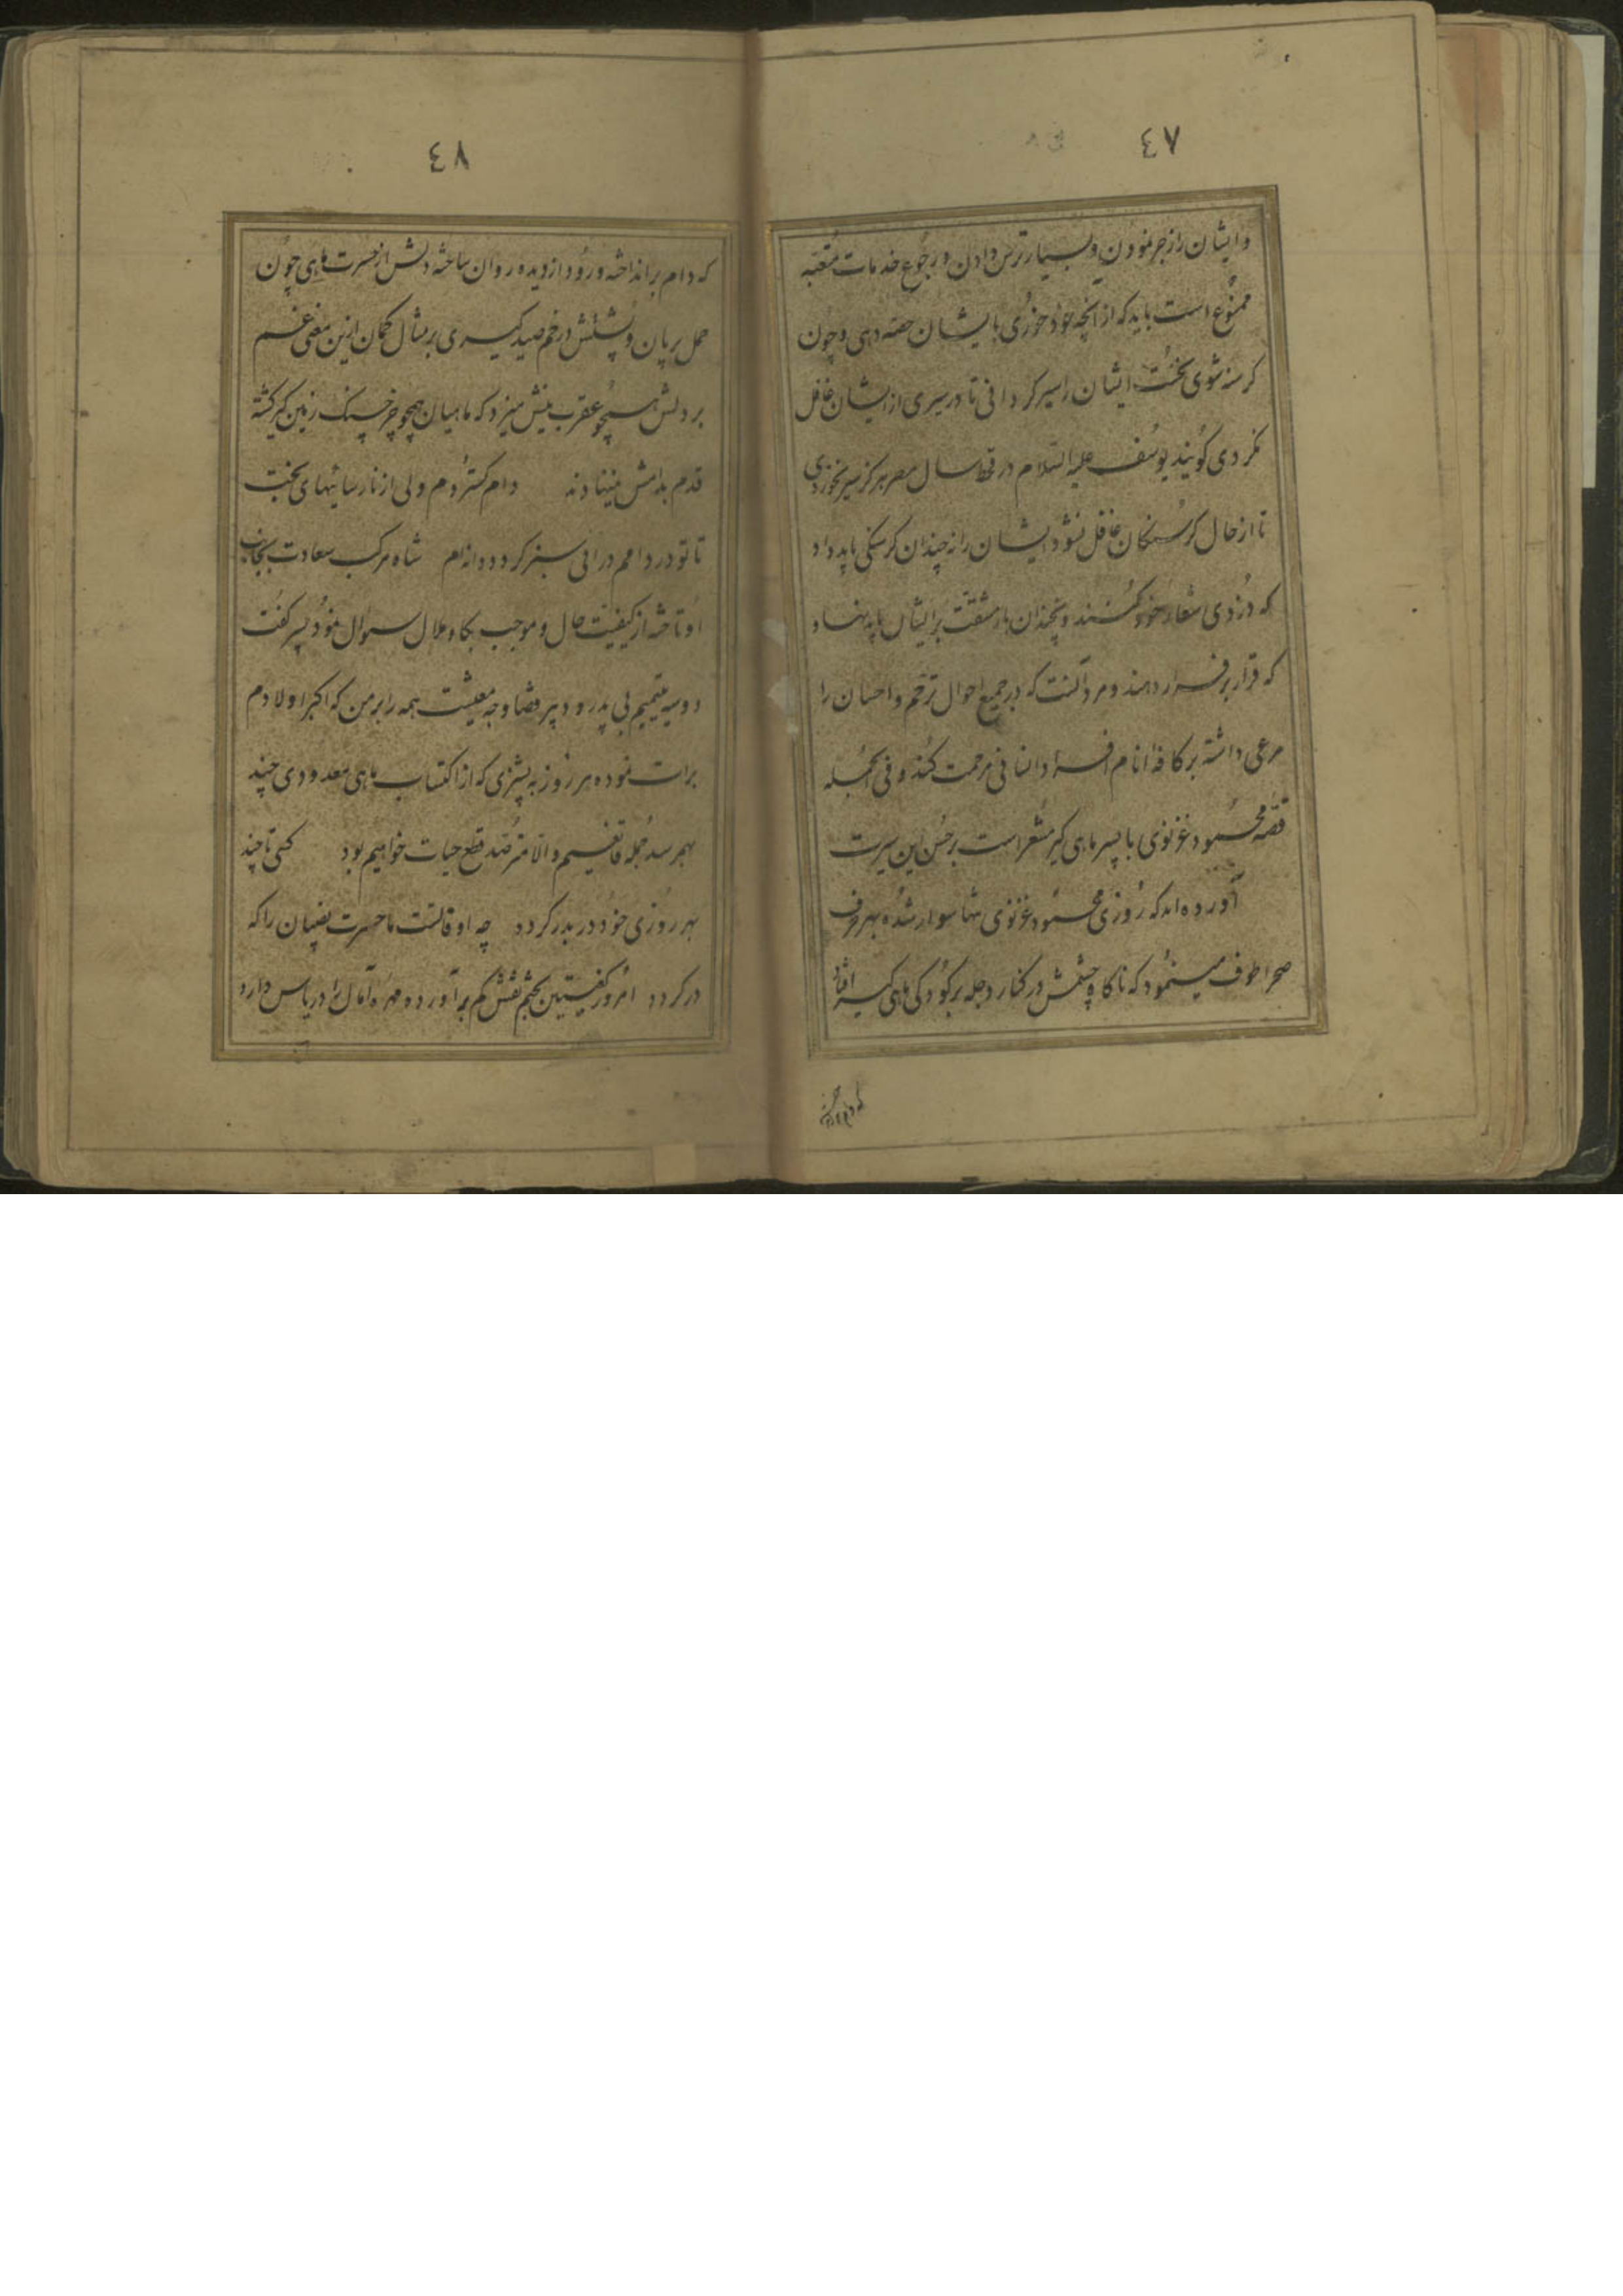 ٤٧
وایشان را زجر نمودن و بسیار ترس دادن و رجوع خدمات متعبه
ممنوع است باید که از آنچه خود خوری بایشان حصه دهی و چون
کرسنه شوی نخست ایشان را سیر کردانی تا در سیری از ایشان غافل
نکردی کویند یوسف علیه السلام در قحط سال مصر هرکز سیر نخوردی
تا از حال کرسنکان غافل نشود ایشان را نه چندان کرسنکی باید داد
که دزدی شعار خود کنند و نچندان بار مشقت بر ایشان باید نهاد
که قرار بر فرار دهند و مرد آنست که در جمیع احوال ترحم و احسان را
مرعی داشته بر کافه انام افراد انسانی مرحمت کند و فی الجمله
قصه محمود غزنوی با پسر ماهی کیر مشعر است بر حسن این سیرت
آورده اند که روزی محمود غزنوی تنها سوار شده بهر طرف
صحرا طوف مینمود که ناکاه چشمش در کنار دجله بر کودکی ماهی کیر افتاد
٤٨
که دام بر انداخته و رود از دیده روان ساخته دلش از حسرت ماهی چون
حمل بریان و پشتش در خم صید کیری بر مثال کمان ازین معنی غم
بر دلش همچو عقرب نیش میزد که ماهیان همچو خرچنک زمین کیر کشته
قدم بدامش نمینهادند دام کستردم ولی از نارسائیهای بخت
تا تو در دامم در آئی سبز کردد دانه ام شاه مرکب سعادت بجانب
او تاخته از کیفیت حال و موجب بکا و ملال سوال نمود پسر کفت
دو سه یتیمیم بی پدر و دبیر قضا وجه معیشت همه را بر من که اکبر اولادم
برات نموده هر روز به پشیزی که از اکتساب ماهی معدودی چند
بهم رسد جمله قانعیم والا مترصد قطع حیات خواهیم بود کسی تا چند
بهر روزی خود در بدر کردد چه اوقاتست ما حسرت نصیبان را که
در کردد امروز کعبتین بختم نقش کم بر آورده و مهره آمال را در یاس دارد